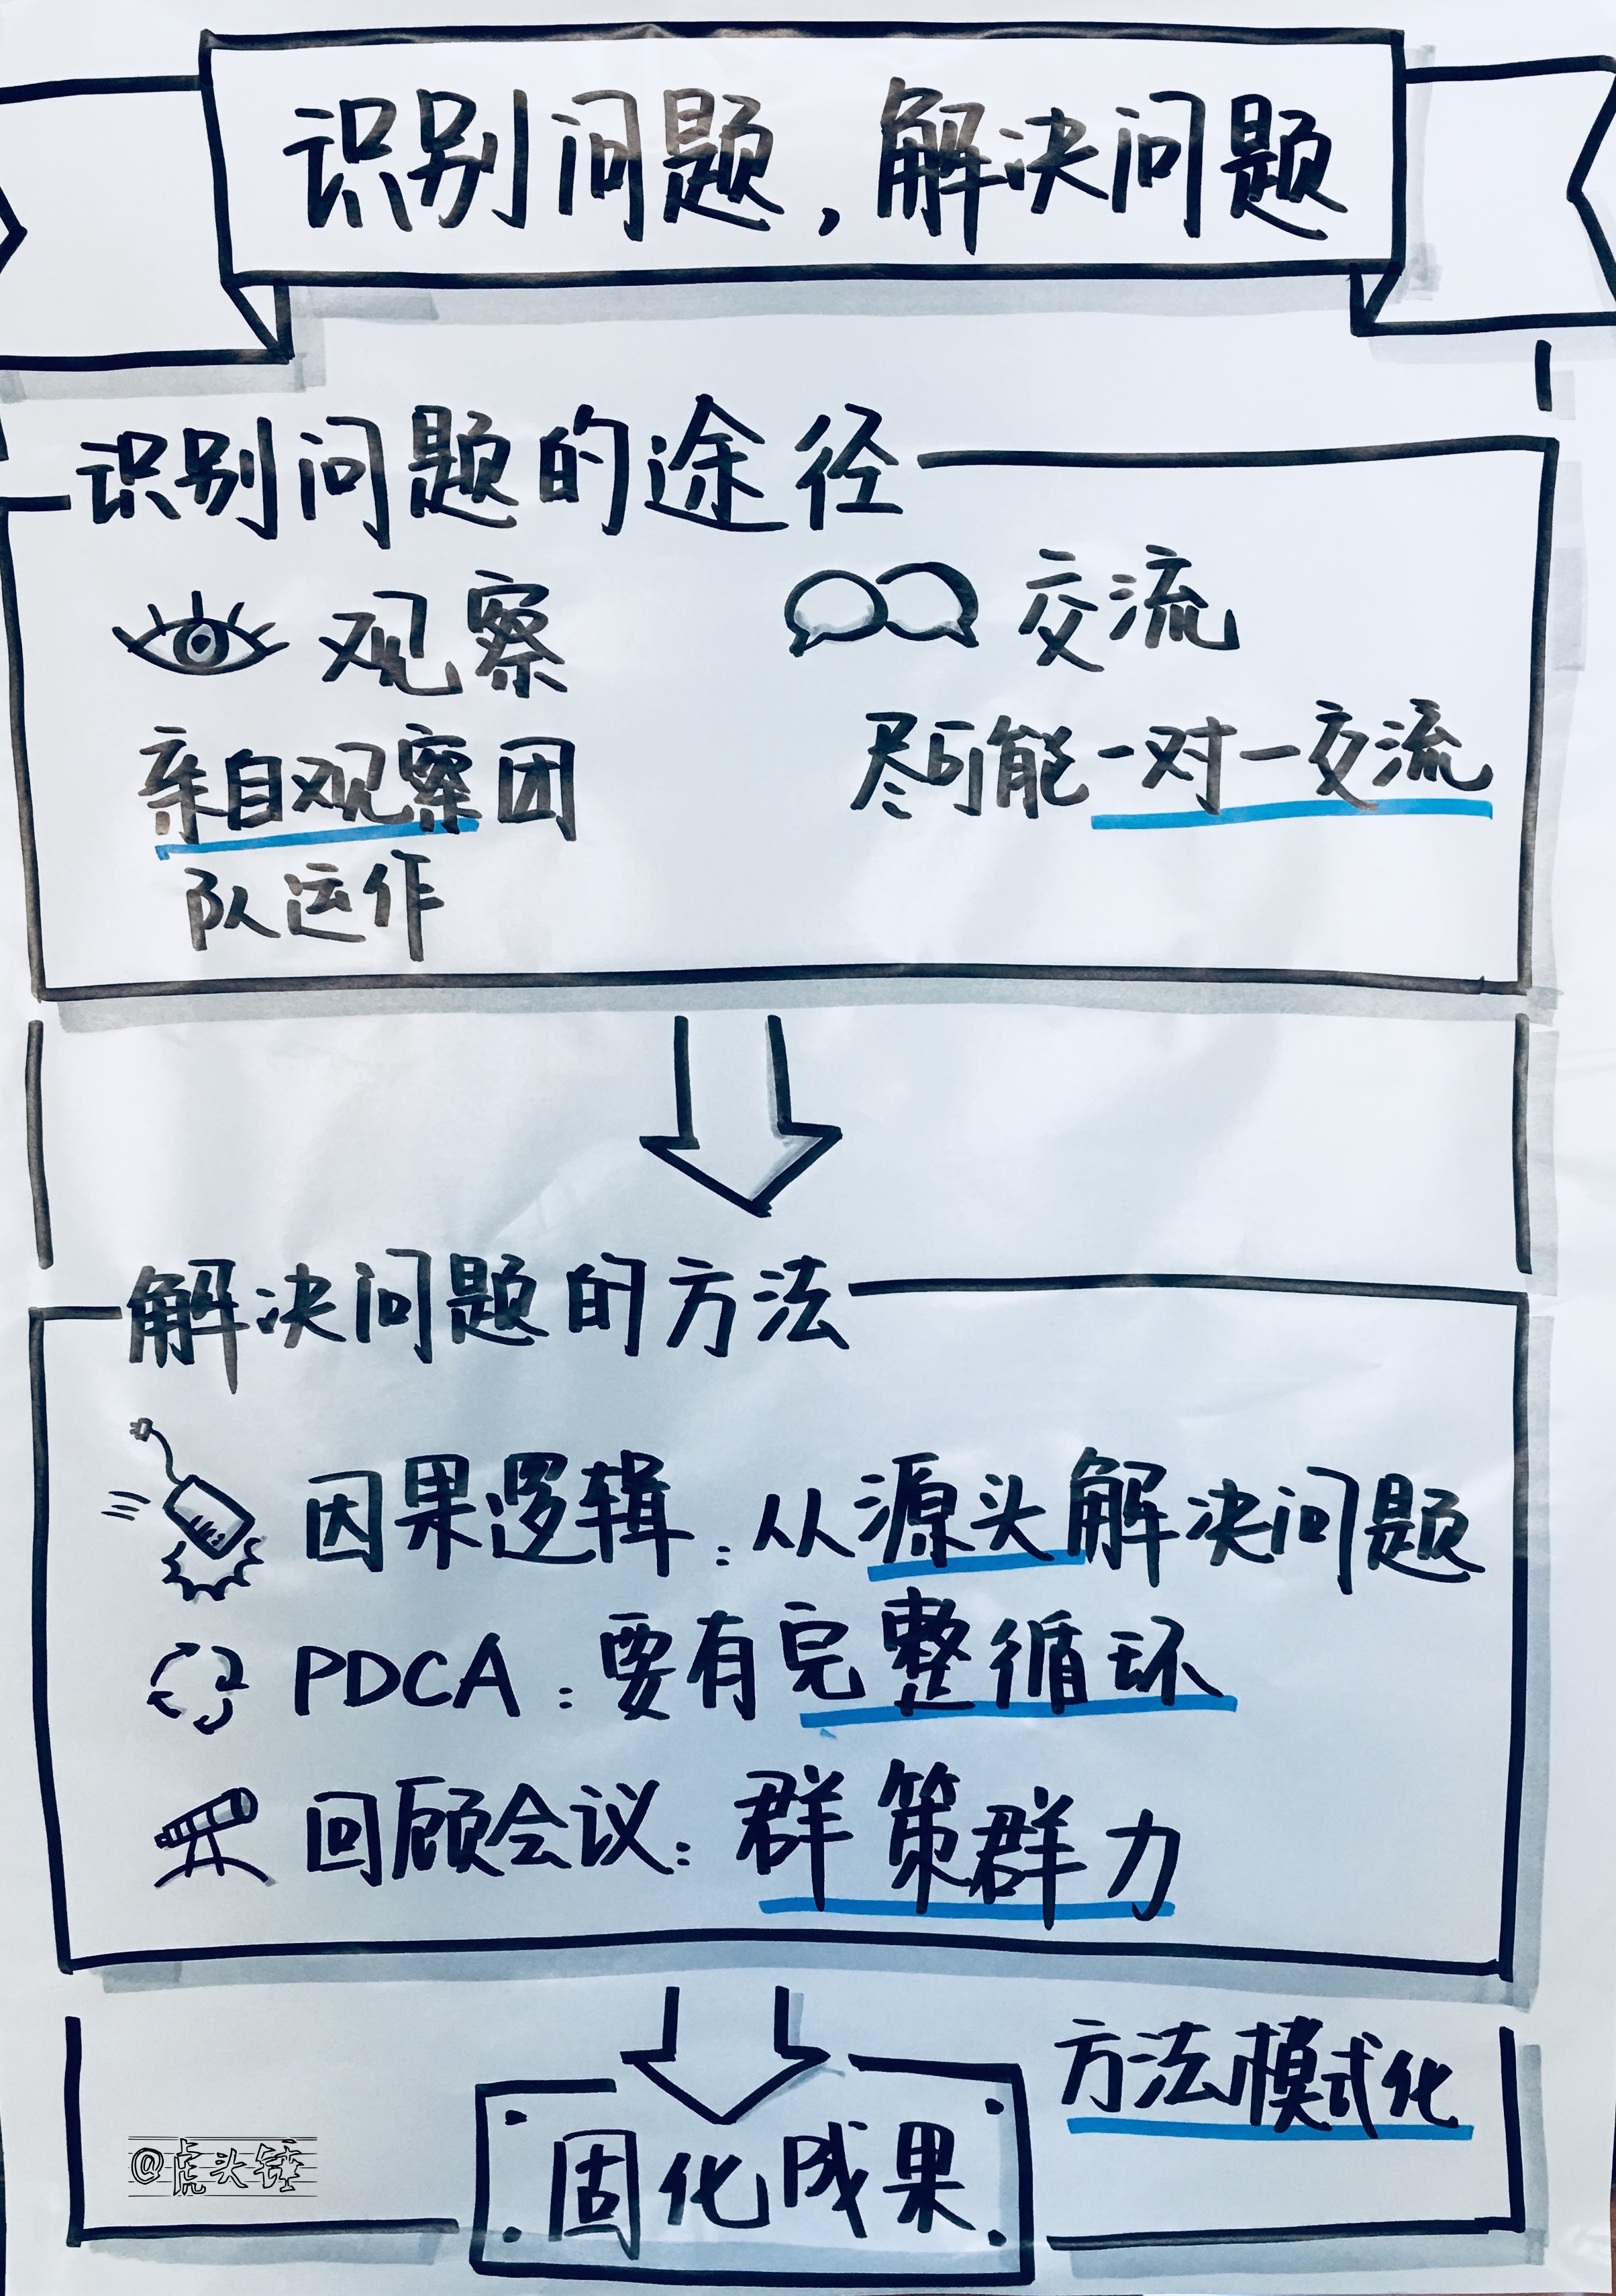 识别问题，解决问题
识别问题的途径
观察
亲自观察团
队运作
交流
尽可能一对一交流
解决问题的方法
因果逻辑：从源头解决问题
PDCA：要有完整循环
回顾会议：群策群力
方法模式化
固化成果
@虎头锤